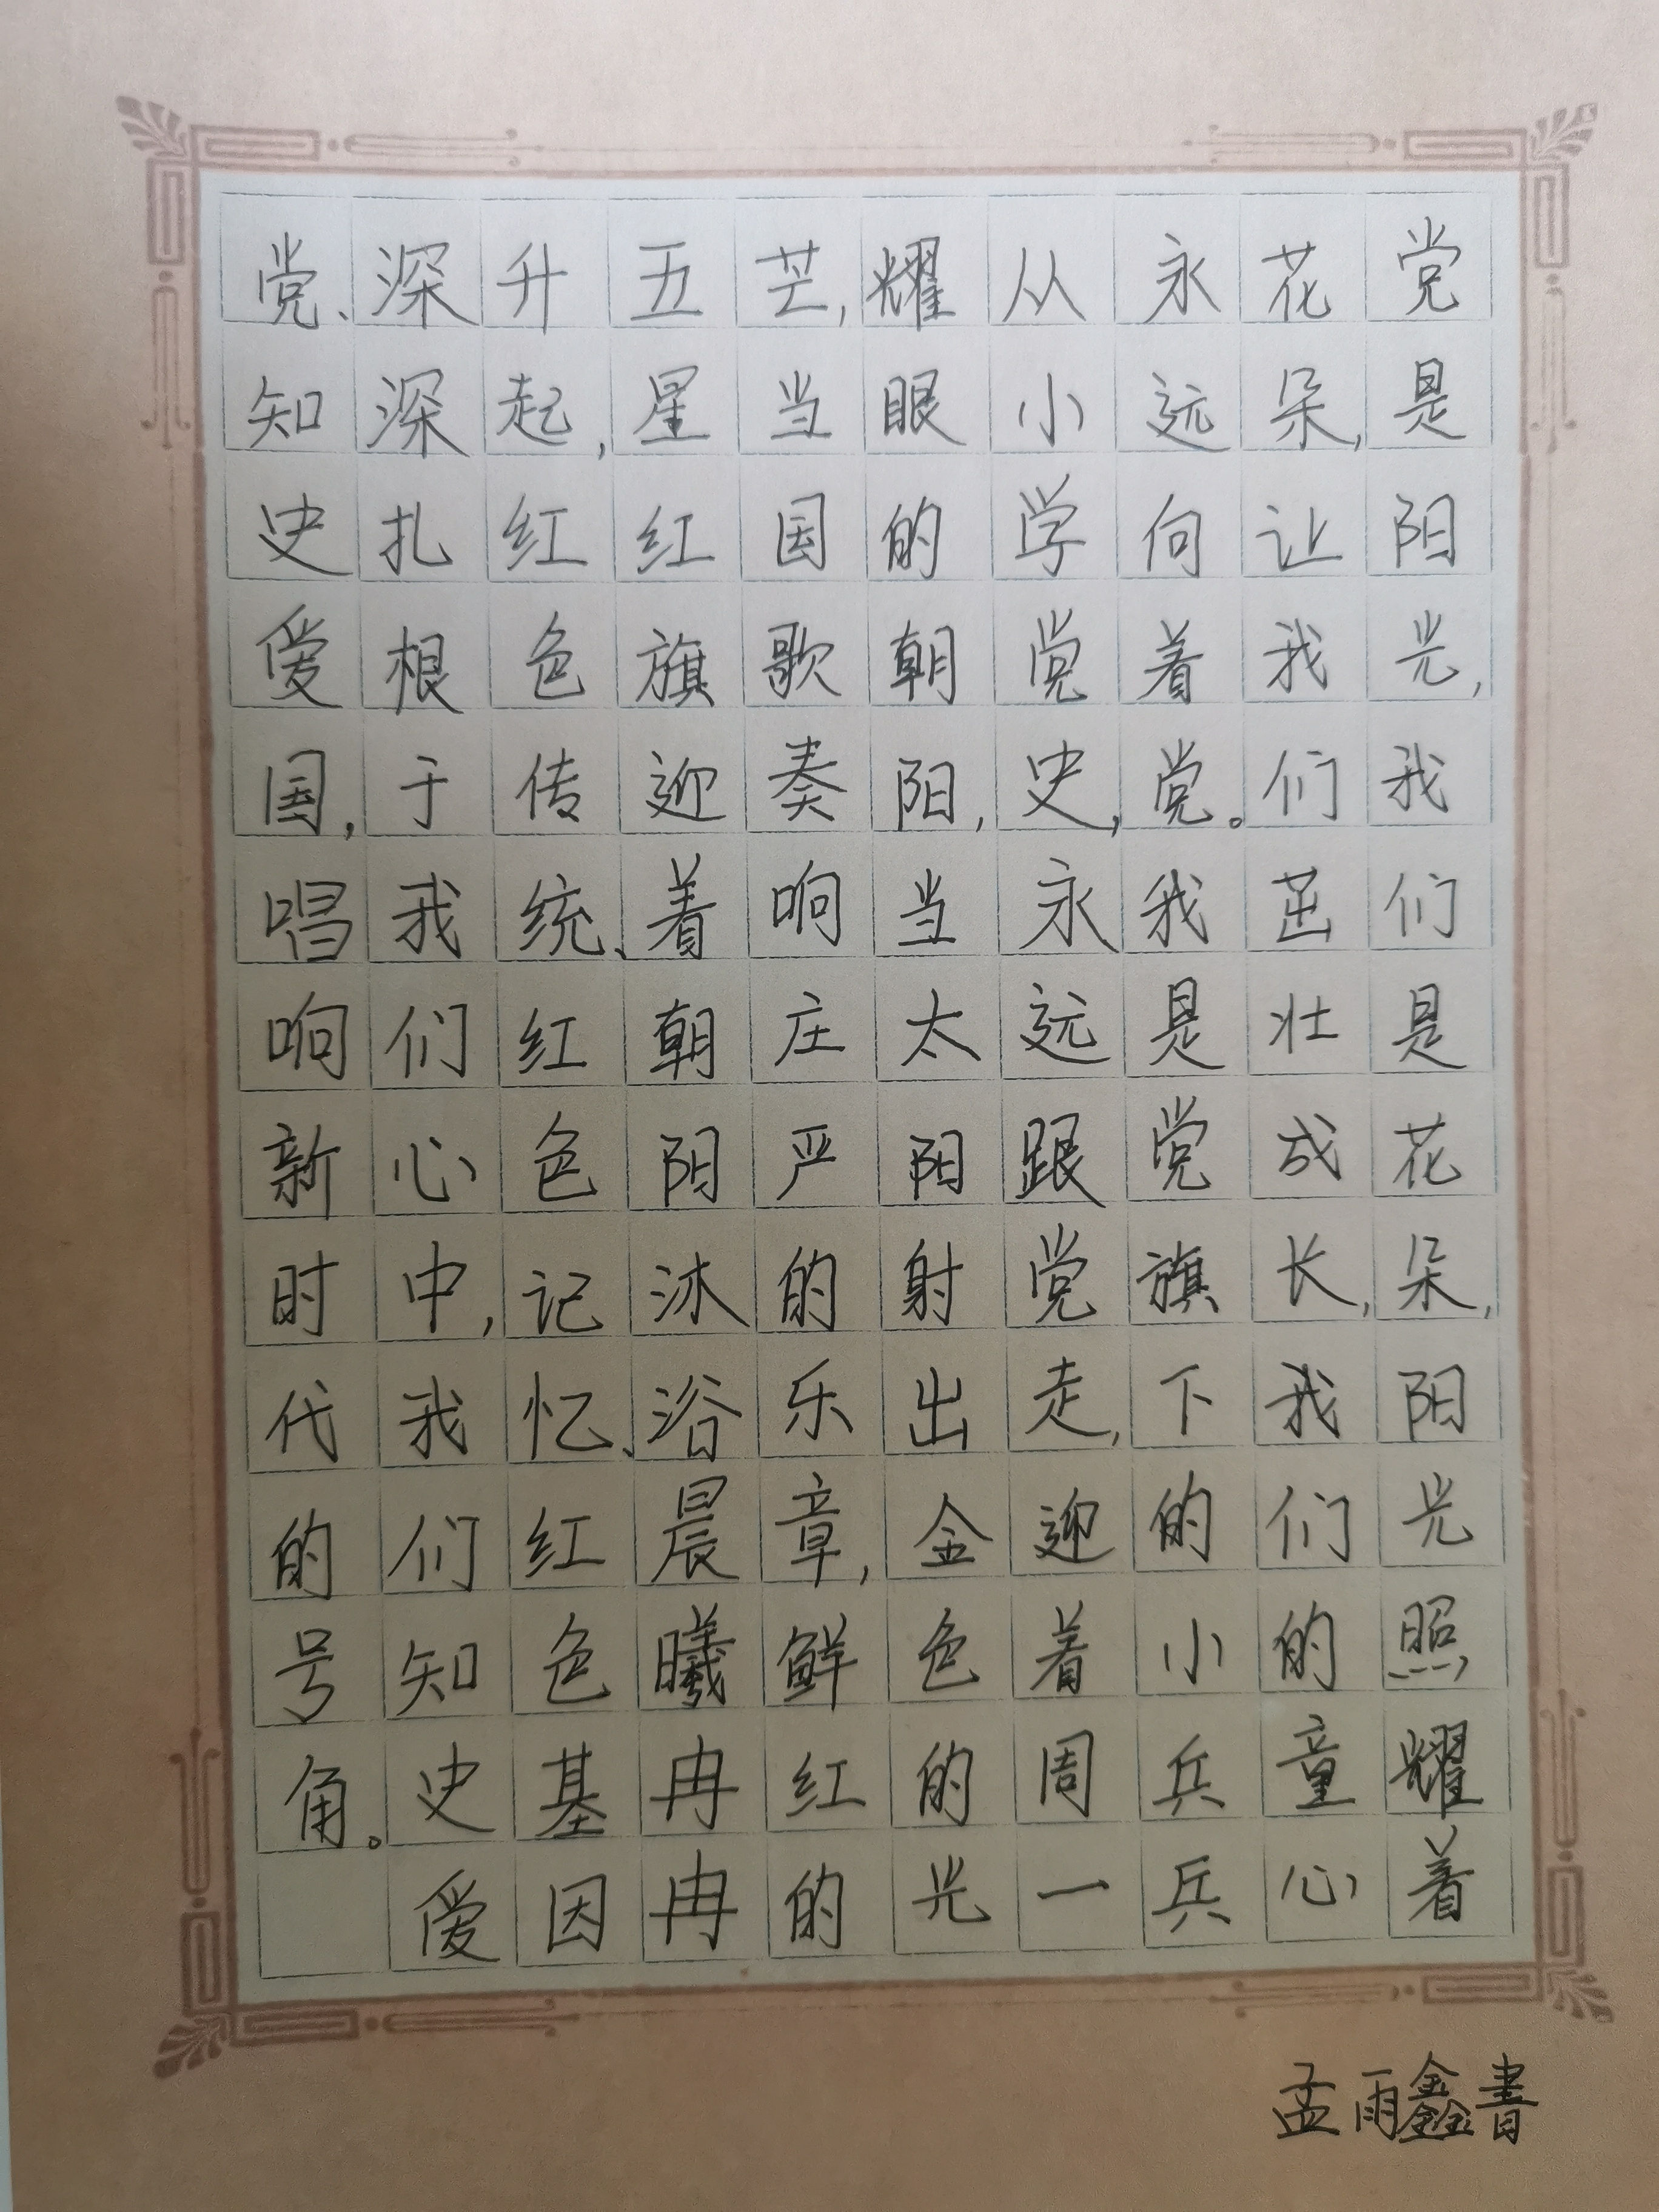 党是阳光,我们是花朵,阳光照耀着
花朵,让我们茁壮成长,我们的童心
永远向着党。我是党旗下的小兵兵
从小学党史,永远跟党走,迎着周一
耀眼的朝阳,当太阳射出金色的光
芒,当国歌奏响庄严的乐章,鲜红的
五星红旗迎着朝阳沐浴晨曦冉冉
升起,红色传统、红色记忆、红色基因
深深扎根于我们心中,我们知史爱
党、知史爱国,唱响新时代的号角。
孟雨鑫書